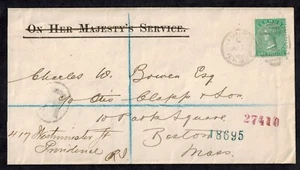 On Her Majesty's Service.
Charles W. Bowen Esq
c/o Otis Clapp & Son
10 Park Square
Boston
Mass.
4117 Westminster St
Providence R I
27410
18695